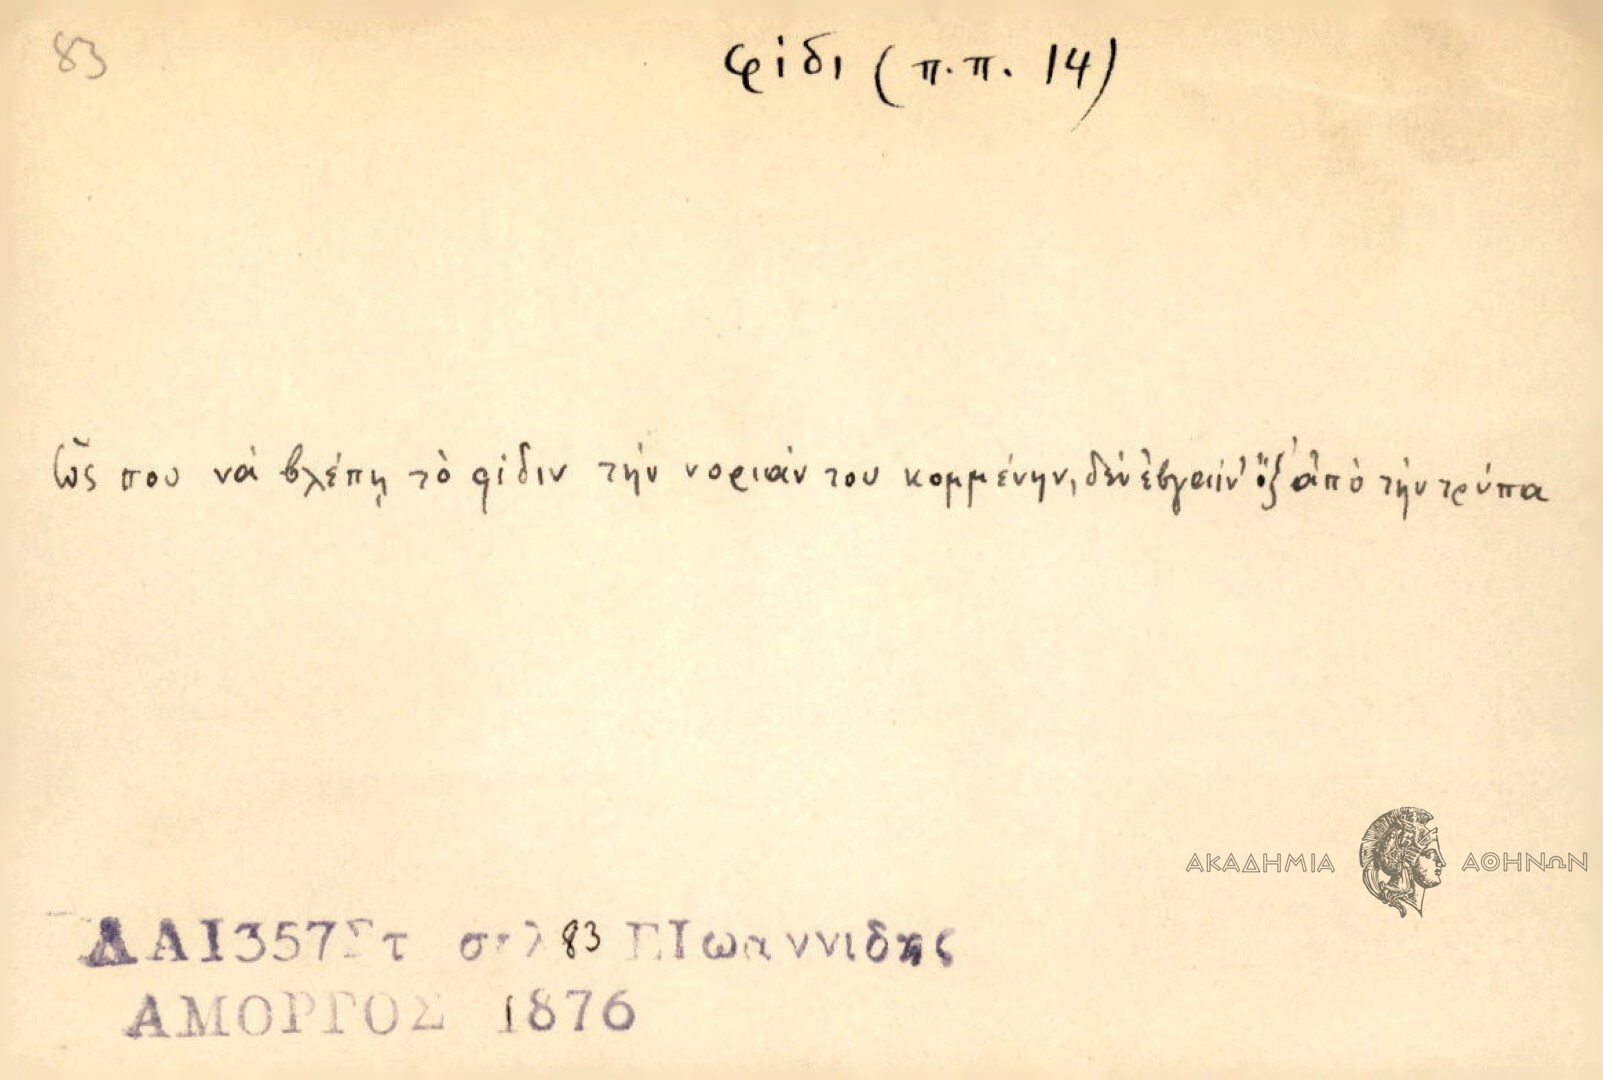 83
φίδι (π.π. 14)
Ὥς που νὰ βλέπῃ τὸ φίδιν τὴν νοριάν του κομμένην, δὲν ἐβγαίν' ὄξ' ἀπὸ τὴν τρύπα
ΑΚΑΔΗΜΙΑ ΑΘΗΝΩΝ
ΔΑΙ357Στ σελ 83 ΕΙωαννιδης
ΑΜΟΡΓΟΣ 1876